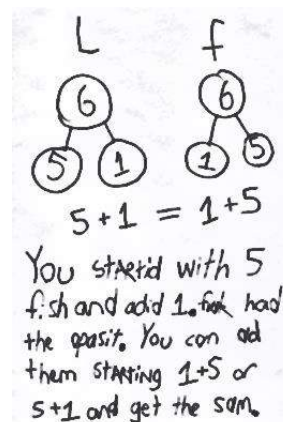 L f
6 6
5 1 1 5
5+1 = 1+5
You startid with 5
fish and adid 1. had
the opasit. You can ad
them starting 1+5 or
5+1 and get the sam.